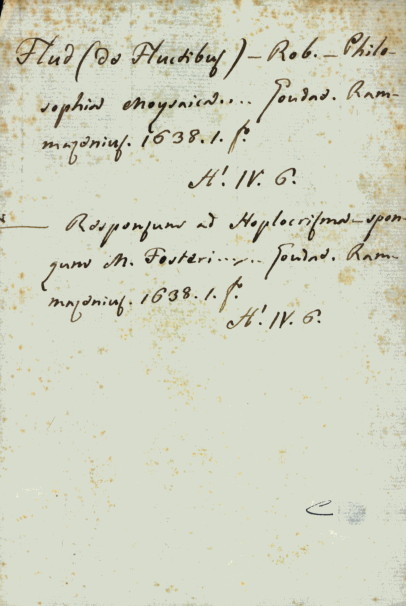 Flud (de Fluctibus) – Rob. – Philo-
sophia Moysaica.... Goudae. Ram-
mazenius. 1638. 1. f°.
H! IV. 6.
— Responsum ad Hoplocrisma-spon-
gum M. Fosteri...... Goudae. Ram-
mazenius. 1638. 1. f°.
H! IV. 6.
C